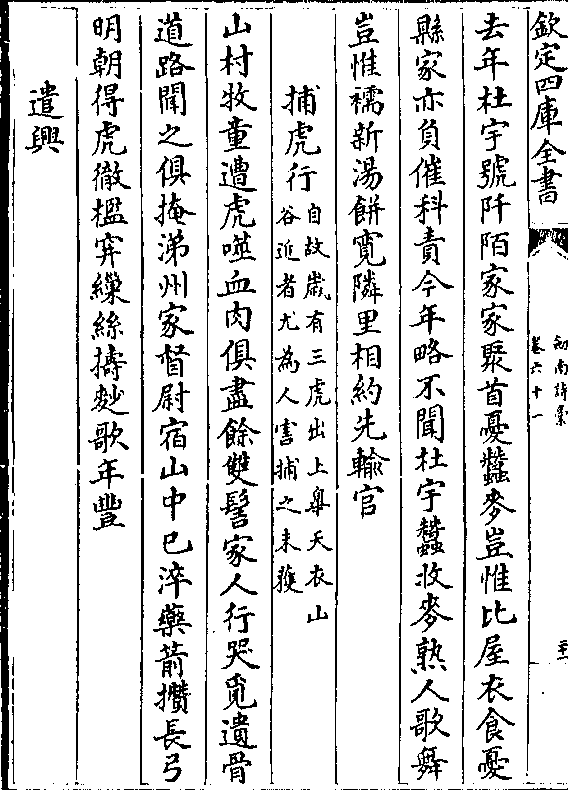 欽定四庫全書
劍南詩稾
卷六十一
去年杜宇號阡陌家家聚首憂蠶麥豈惟比屋衣食憂
縣家亦負催科責今年略不聞杜宇蠶收麥熟人歌舞
豈惟襦新湯餅寛隣里相約先輸官
捕虎行
自故歲有三虎出上臯天衣山
谷近者尤為人害捕之未獲
山村牧童遭虎噬血肉俱盡餘雙髻家人行哭覓遺骨
道路聞之俱掩涕州家督尉宿山中已淬藥箭攢長弓
明朝得虎徹檻穽繅絲擣麨歌年豐
遣興